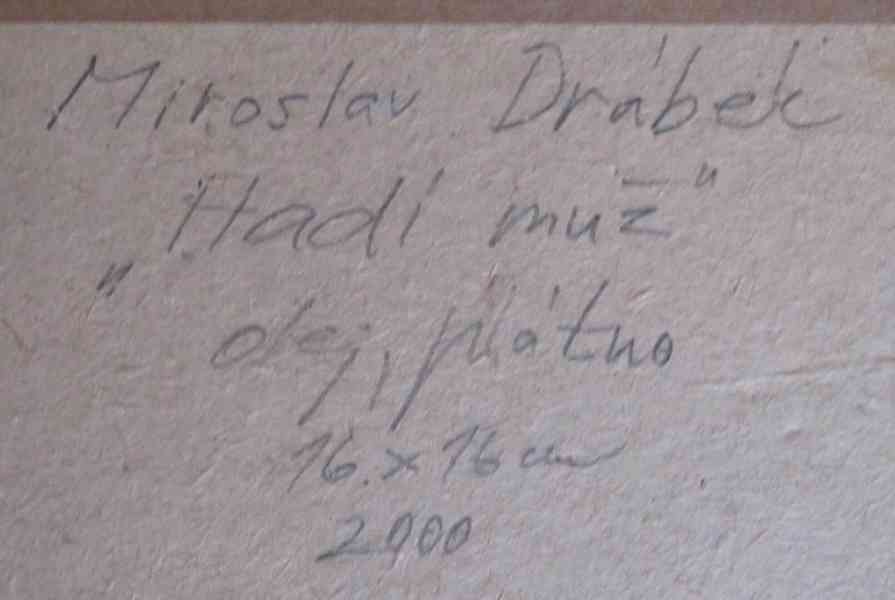 Miroslav Drábek
„Hadí muž"
olej, plátno
16 x 16 cm
2000